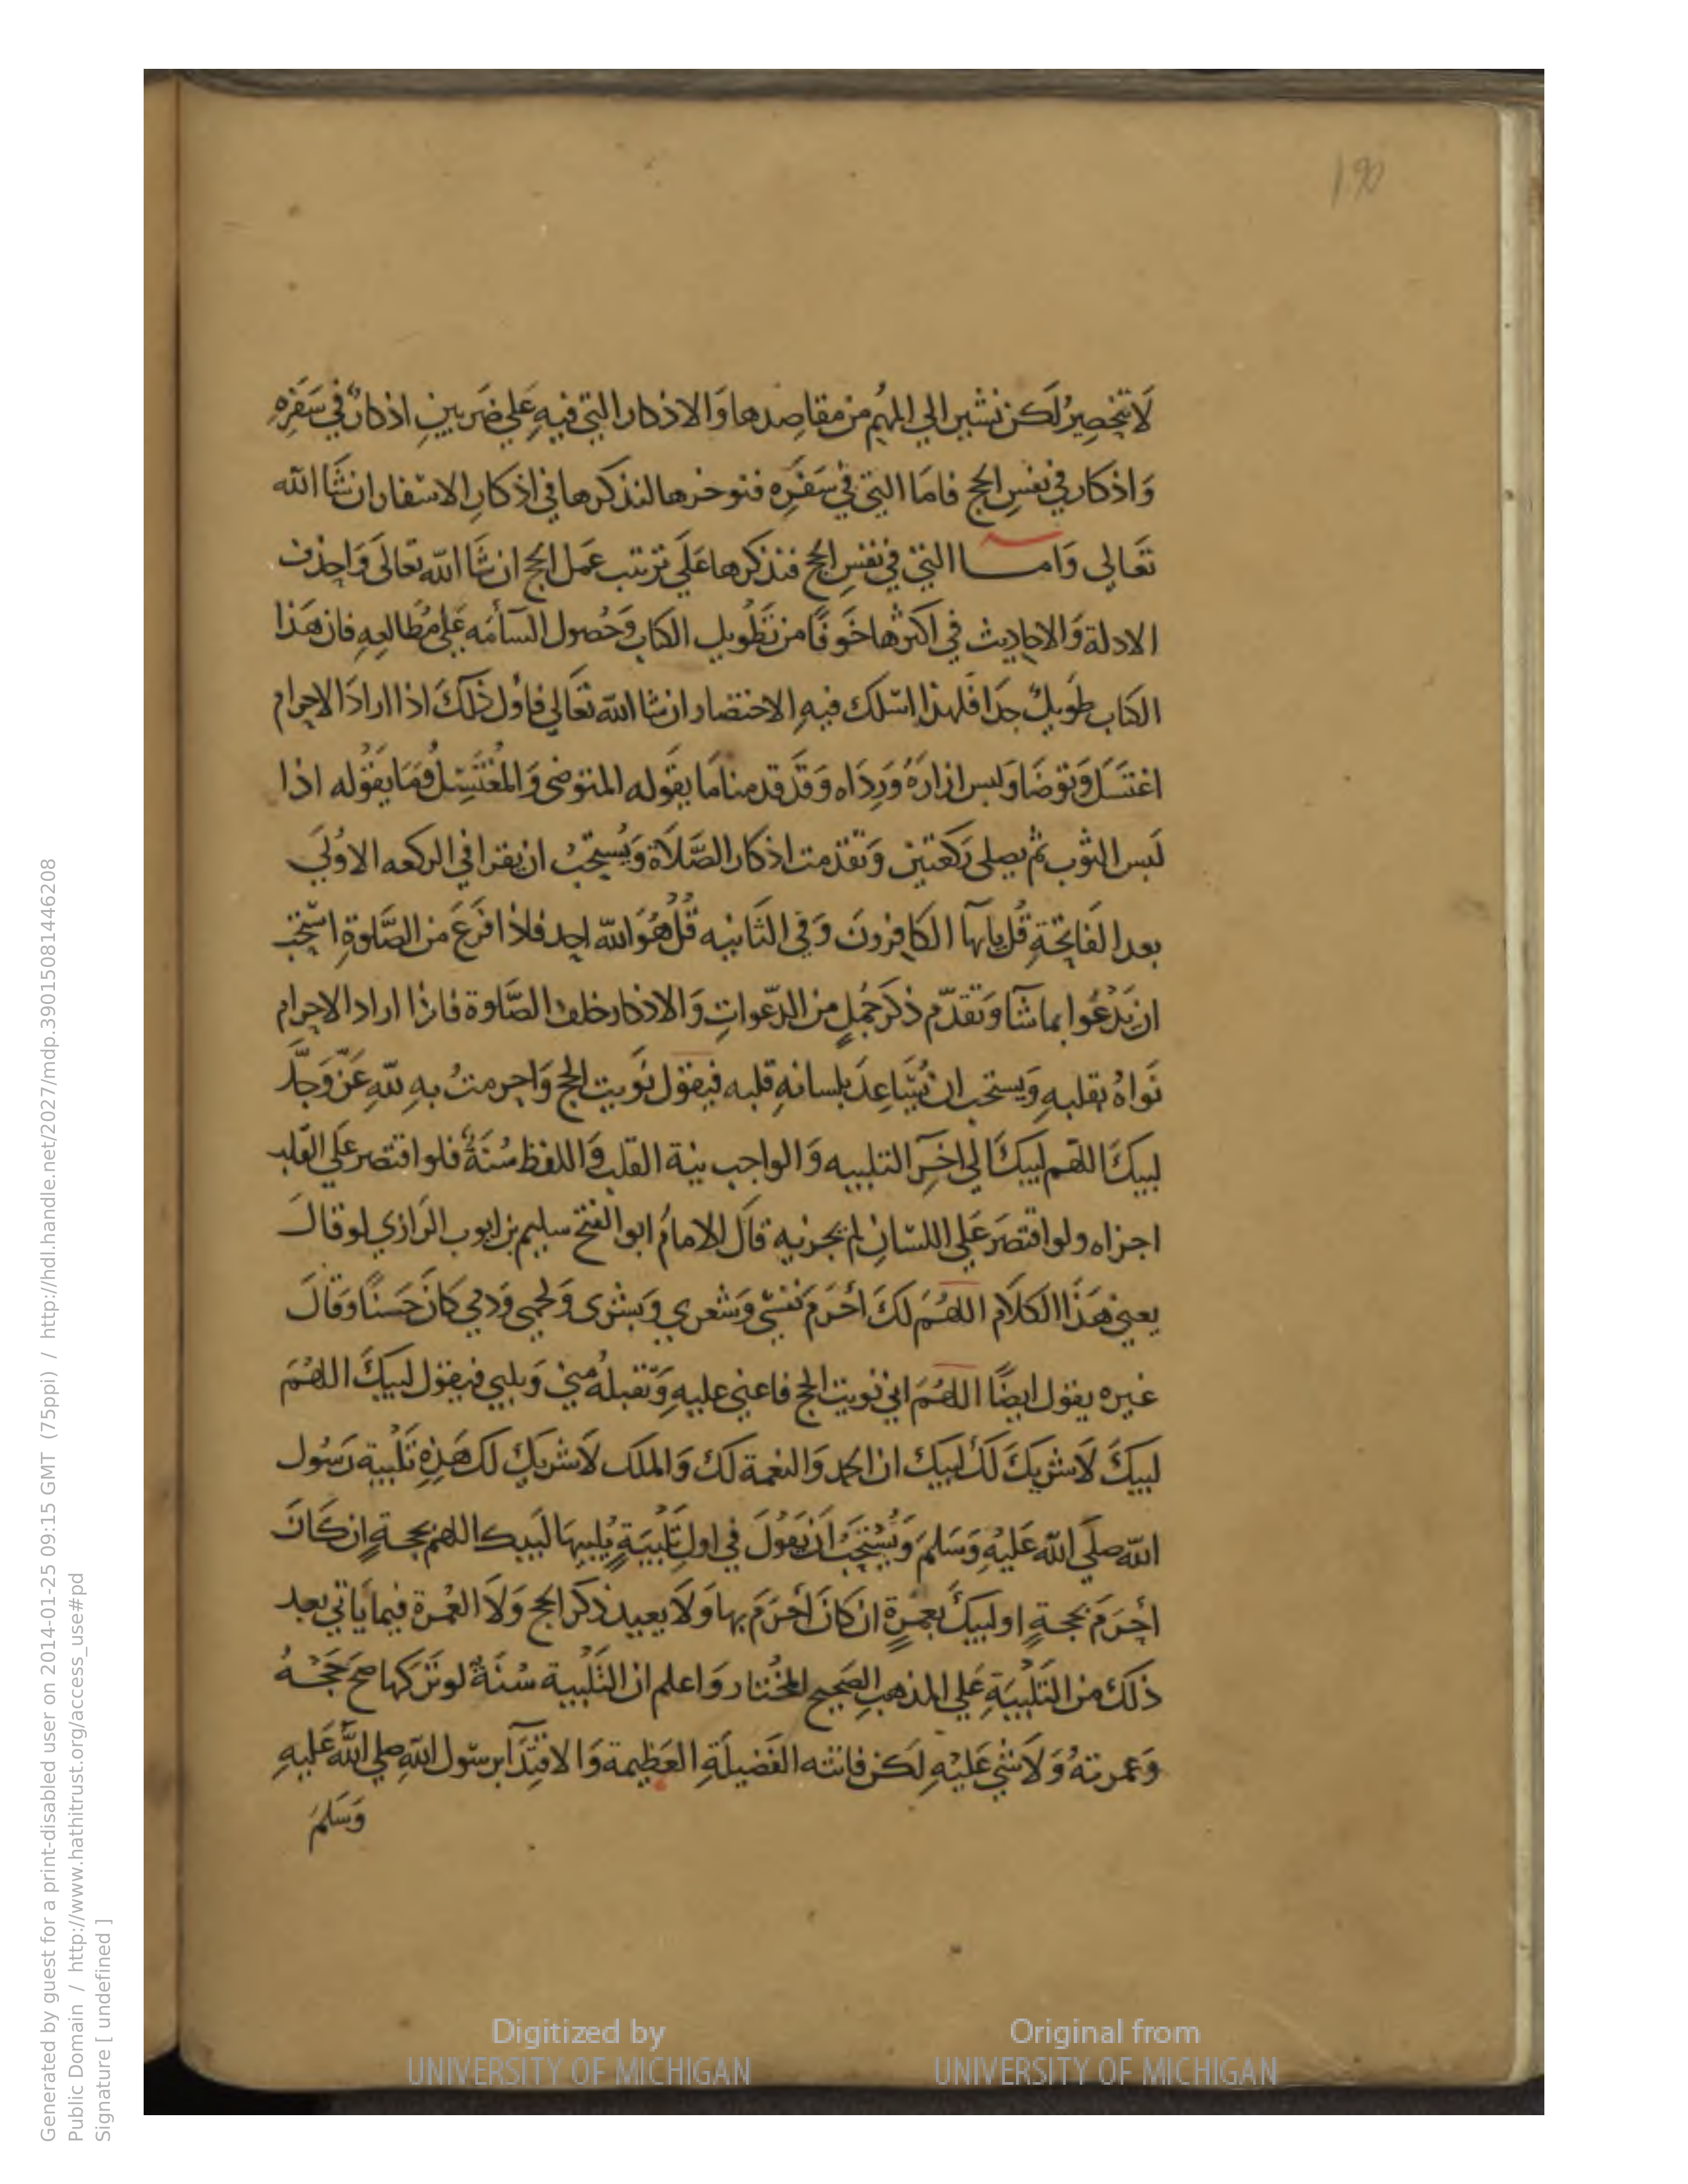 190
لَا تنحصِرُ لَكن نشير الي المهُم من مقاصِدها وَالاذكار التي فيهِ عَلي ضَربينِ اذكارٌ في سَفرِهِ
وَاذكار في نفسِ الحج فامَا التي في سَفَرِه فنوخرها لنذكرها في اذكارِ الاسفار ان شَا الله
تَعَالي وَامــا التي في نفسِ الحج فنذكرها عَلَي ترتيب عَمل الحج ان شَا الله تعَالَى وَاحذف
الادلة وَالاحاديث في اكثرها خَوفًا من تَطْويل الكتاب وَحُصول السآمَه عَلي مُطَالعِهِ فان هَذا
الكتاب طَويلٌ جدَا فلهذا اسْلك فيهِ الاختصار ان شا الله تعَالي فاوْل ذَلكَ اذا ارادَ الاحرام
اغتسَلَ وَتوضَا وَلبس ازارَهُ وَرِدَاه وَقَد قدمنا مَا يقَوله المتوضي وَالمُغْتَسِلُ وَمَا يقوُله اذا
لَبس الثوب ثم يصلى رَكعَتين وَتقدمت اذكار الصَّلَاة وَيُستحَبُ ان يقرا في الركعه الاوُلَي
بعد الفَاتِحَةِ قُل يايها الكَافِرونَ وَفي الثَانيه قُلُ هُوَ الله احد فاذا فَرَغَ من الصَّلوةِ استُحب
ان يَدْعُوا بما شآ وَتقَدّم ذكرَ جُملٍ من الدّعواتِ وَالاذكار خلف الصَّلوة فاذا اراد الاحرام
نَواهُ بقلبهِ وَيستحب ان يُسَاعِدَ بلسانهِ قلبه فيقول نَويت الحج وَاحرمتُ بهِ للّهِ عَزّ وَجلَّ
لبيكَ اللهم لبيكَ الي اخرِ التلبيه وَالواجب نية القلب وَاللفظ سُنَةٌ فلو اقتصر عَلَي القلب
اجزاه ولو اقتصَرَ عَلي اللسانِ لم يجزيه قَالَ الامامُ ابو الفتح سليم بن ايوب الرَازي لو قالَ
يعني هَذا الكلَام اللهُمَ لكَ احْرَمَ نفسي وَشعري وَبشرى وَلحمي وَدمي كانَ حَسنًا وَقالَ
غيره يقول ايضًا اللهُمَ اني نويت الحج فاعني عليهِ وَتقبلهُ مني وَيلبي فيقول لبيكَ اللهُمَ
لبيكَ لَا شريكَ لَكَ لبيك ان الحمد وَالنعمة لَك وَالملك لَا شريكِ لك هَذِهِ تَلْبية رَسُول
الله صلَي الله عَلَيْهِ وَسَلَم وَيُسْتَحَبُ اَن يَقوُلَ في اول تَلْبيَةٍ يُلبيهَا لَبيك اللهم بحجـةٍ ان كَانَ
احْرَمَ بحجةٍ او لبيكَ بعمرةٍ ان كانَ احْرَمَ بها وَلَا يعيد ذكر الحج وَلَا العُمرة فيما يَاتي بعد
ذلكَ من التَلْبيَةِ عَلي المذهبِ الصَحِيح المُختار وَاعلم ان التَلْبية سُنَةٌ لو تَركها صَحَ حَجُـهُ
وَعمرتهُ وَلَا شي عَليْهِ لَكن فاتته الفَضيلَةِ العَظيمة وَالاقتِدَآ برسول اللهِ صلي الله عَليهِ
وَسَلمَ
Digitized by
UNIVERSITY OF MICHIGAN
Original from
UNIVERSITY OF MICHIGAN
Generated by guest for a print-disabled user on 2014-01-25 09:15 GMT (75ppi) / http://hdl.handle.net/2027/mdp.39015081446208
Public Domain / http://www.hathitrust.org/access_use#pd
Signature [ undefined ]